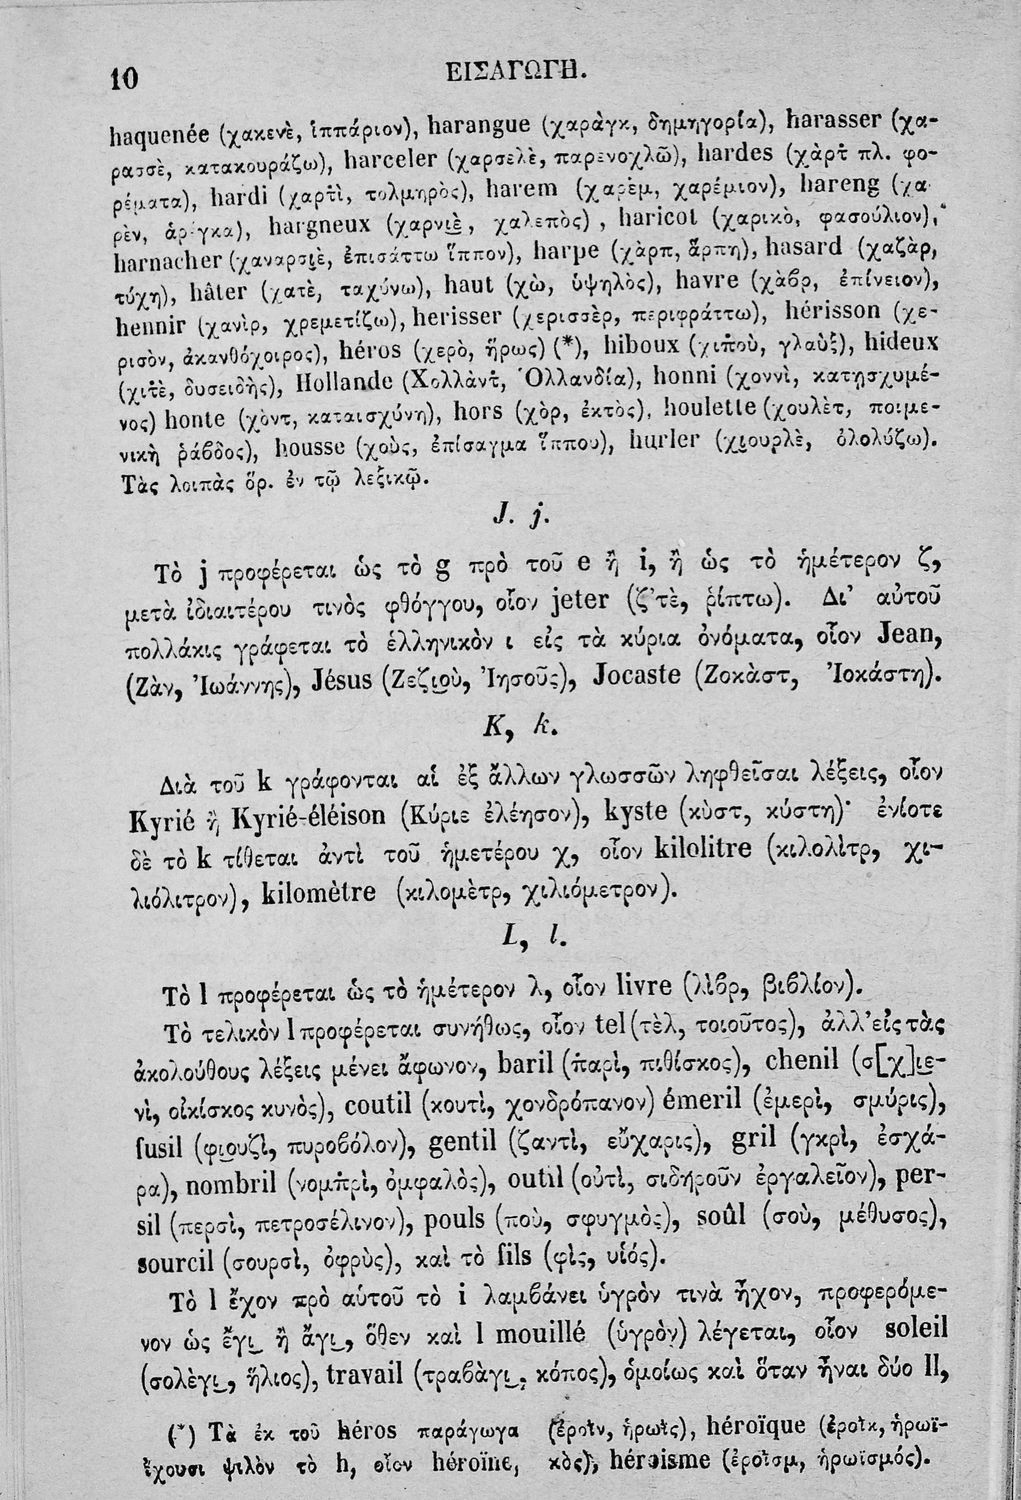 10
ΕΙΣΑΓΩΓΗ.
haquenée (χακενὲ, ἱππάριον), harangue (χαρὰγκ, δημηγορία), harasser (χα-
ρασσὲ, κατακουράζω), harceler (χαρσελὲ, παρενοχλῶ), hardes (χὰρτ πλ. φο-
ρέματα), hardi (χαρτὶ, τολμηρὸς), harem (χαρὲμ, χαρέμιον), hareng (χα
ρὲν, ἀρίγκα), hargneux (χαρνιὲ, χαλεπὸς), haricot (χαρικὸ, φασούλιον),
harnacher (χαναρσιὲ, ἐπισάττω ἵππον), harpe (χὰρπ, ἅρπη), hasard (χαζὰρ,
τύχη), hâter (χατὲ, ταχύνω), haut (χὼ, ὑψηλὸς), havre (χὰβρ, ἐπίνειον),
hennir (χανὶρ, χρεμετίζω), herisser (χερισσὲρ, περιφράττω), hérisson (χε-
ρισὸν, ἀκανθόχοιρος), héros (χερὸ, ἥρως) (*), hiboux (χιποὺ, γλαὺξ), hideux
(χιτὲ, δυσειδὴς), Hollande (Χολλὰντ, Ὁλλανδία), honni (χοννὶ, κατῃσχυμέ-
νος) honte (χὸντ, καταισχύνη), hors (χὸρ, ἐκτὸς), houlette (χουλὲτ, ποιμε-
νικὴ ῥάβδος), housse (χοὺς, ἐπίσαγμα ἵππου), hurler (χιουρλὲ, ὀλολύζω).
Τὰς λοιπὰς ὅρ. ἐν τῷ λεξικῷ.
J. j.
Τὸ j προφέρεται ὡς τὸ g πρὸ τοῦ e ἢ i, ἢ ὡς τὸ ἡμέτερον ζ,
μετὰ ἰδιαιτέρου τινὸς φθόγγου, οἷον jeter (ζ’τὲ, ῥίπτω). Δι’ αὐτοῦ
πολλάκις γράφεται τὸ ἑλληνικὸν ι εἰς τὰ κύρια ὀνόματα, οἷον Jean,
(Ζὰν, Ἰωάννης), Jésus (Ζεζιοὺ, Ἰησοῦς), Jocaste (Ζοκὰστ, Ἰοκάστη).
K, k.
Διὰ τοῦ k γράφονται αἱ ἐξ ἄλλων γλωσσῶν ληφθεῖσαι λέξεις, οἷον
Kyrié ἢ Kyrié-éléison (Κύριε ἐλέησον), kyste (κὺστ, κύστη)· ἐνίοτε
δὲ τὸ k τίθεται ἀντὶ τοῦ ἡμετέρου χ, οἷον kilolitre (κιλολὶτρ, χι-
λιόλιτρον), kilomètre (κιλομὲτρ, χιλιόμετρον).
L, l.
Τὸ l προφέρεται ὡς τὸ ἡμέτερον λ, οἷον livre (λὶβρ, βιβλίον).
Τὸ τελικὸν l προφέρεται συνήθως, οἷον tel (τὲλ, τοιοῦτος), ἀλλ’ εἰς τὰς
ἀκολούθους λέξεις μένει ἄφωνον, baril (παρὶ, πιθίσκος), chenil (σ[χ]ιε-
νὶ, οἰκίσκος κυνὸς), coutil (κουτὶ, χονδρόπανον) émeril (ἐμερὶ, σμύρις),
fusil (φιουζὶ, πυροβόλον), gentil (ζαντὶ, εὔχαρις), gril (γκρὶ, ἐσχά-
ρα), nombril (νομπρὶ, ὀμφαλὸς), outil (οὐτὶ, σιδηροῦν ἐργαλεῖον), per-
sil (περσὶ, πετροσέλινον), pouls (ποὺ, σφυγμὸς), soûl (σοὺ, μέθυσος),
sourcil (σουρσὶ, ὀφρὺς), καὶ τὸ fils (φὶς, υἱός).
Τὸ l ἔχον πρὸ αὑτοῦ τὸ i λαμβάνει ὑγρὸν τινὰ ἦχον, προφερόμε-
νον ὡς ἔγι ἢ ἄγι, ὅθεν καὶ l mouillé (ὑγρὸν) λέγεται, οἷον soleil
(σολὲγι, ἥλιος), travail (τραβὰγι, κόπος), ὁμοίως καὶ ὅταν ἦναι δύο ll,
(*) Τὰ ἐκ τοῦ héros παράγωγα
ἔχουσι ψιλὸν τὸ h, οἷον héroïne,
(ἐροῒν, ἡρωῒς), héroïque (ἐροῒκ, ἡρωϊ-
κὸς), héroisme (ἐροῒσμ, ἡρωϊσμός).